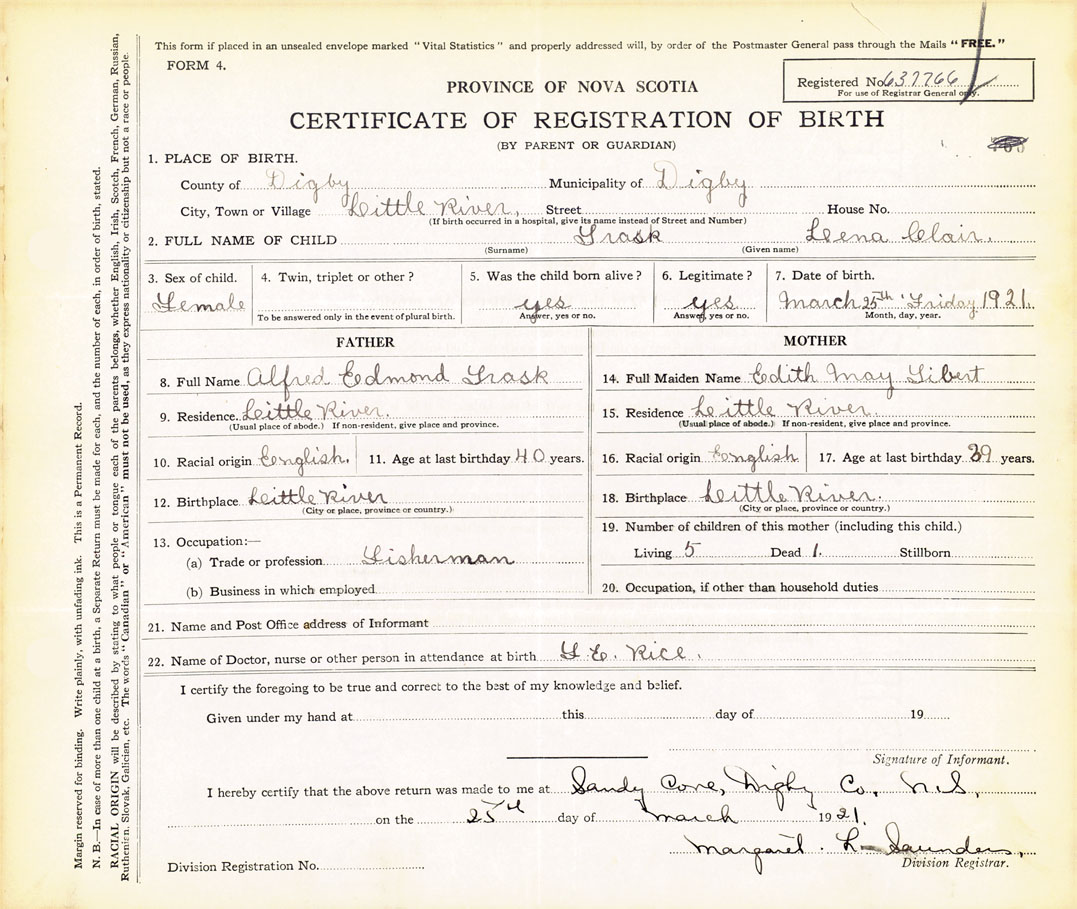 This form if placed in an unsealed envelope marked "Vital Statistics" and properly addressed will, by order of the Postmaster General pass through the Mails "FREE."
FORM 4.
Registered No. 637766
For use of Registrar General only.
PROVINCE OF NOVA SCOTIA
CERTIFICATE OF REGISTRATION OF BIRTH
(BY PARENT OR GUARDIAN)
1. PLACE OF BIRTH.
County of Digby Municipality of Digby
City, Town or Village Little River, Street House No.
(If birth occurred in a hospital, give its name instead of Street and Number)
2. FULL NAME OF CHILD Trask Leena Clair.
(Surname) (Given name)
3. Sex of child. 4. Twin, triplet or other? 5. Was the child born alive? 6. Legitimate? 7. Date of birth.
Female yes yes March 25th Friday 1921.
To be answered only in the event of plural birth. Answer, yes or no. Answer, yes or no. Month, day, year.
FATHER
8. Full Name Alfred Edmond Trask
9. Residence. Little River.
(Usual place of abode.) If non-resident, give place and province.
10. Racial origin English. 11. Age at last birthday 40 years.
12. Birthplace Little River
(City or place, province or country.)
13. Occupation:—
(a) Trade or profession Fisherman
(b) Business in which employed
MOTHER
14. Full Maiden Name Edith May Tibert
15. Residence Little River.
(Usual place of abode.) If non-resident, give place and province.
16. Racial origin English 17. Age at last birthday 39 years.
18. Birthplace Little River.
(City or place, province or country.)
19. Number of children of this mother (including this child.)
Living 5 Dead 1. Stillborn
20. Occupation, if other than household duties
21. Name and Post Office address of Informant
22. Name of Doctor, nurse or other person in attendance at birth F. E. Rice.
I certify the foregoing to be true and correct to the best of my knowledge and belief.
Given under my hand at this day of 19
Signature of Informant.
I hereby certify that the above return was made to me at Sandy Cove, Digby Co, N.S,
on the 25th day of March 1921.
Margaret. L. Saunders,
Division Registrar.
Division Registration No.
Margin reserved for binding. Write plainly, with unfading ink. This is a Permanent Record.
N. B.—In case of more than one child at a birth, a Separate Return must be made for each, and the number of each, in order of birth, stated.
RACIAL ORIGIN will be described by stating to what people or tongue each of the parents belongs, whether English, Irish, Scotch, French, German, Russian,
Ruthenian, Slovak, Galician, etc. The words "Canadian" or "American" must not be used, as they express nationality or citizenship but not a race or people.